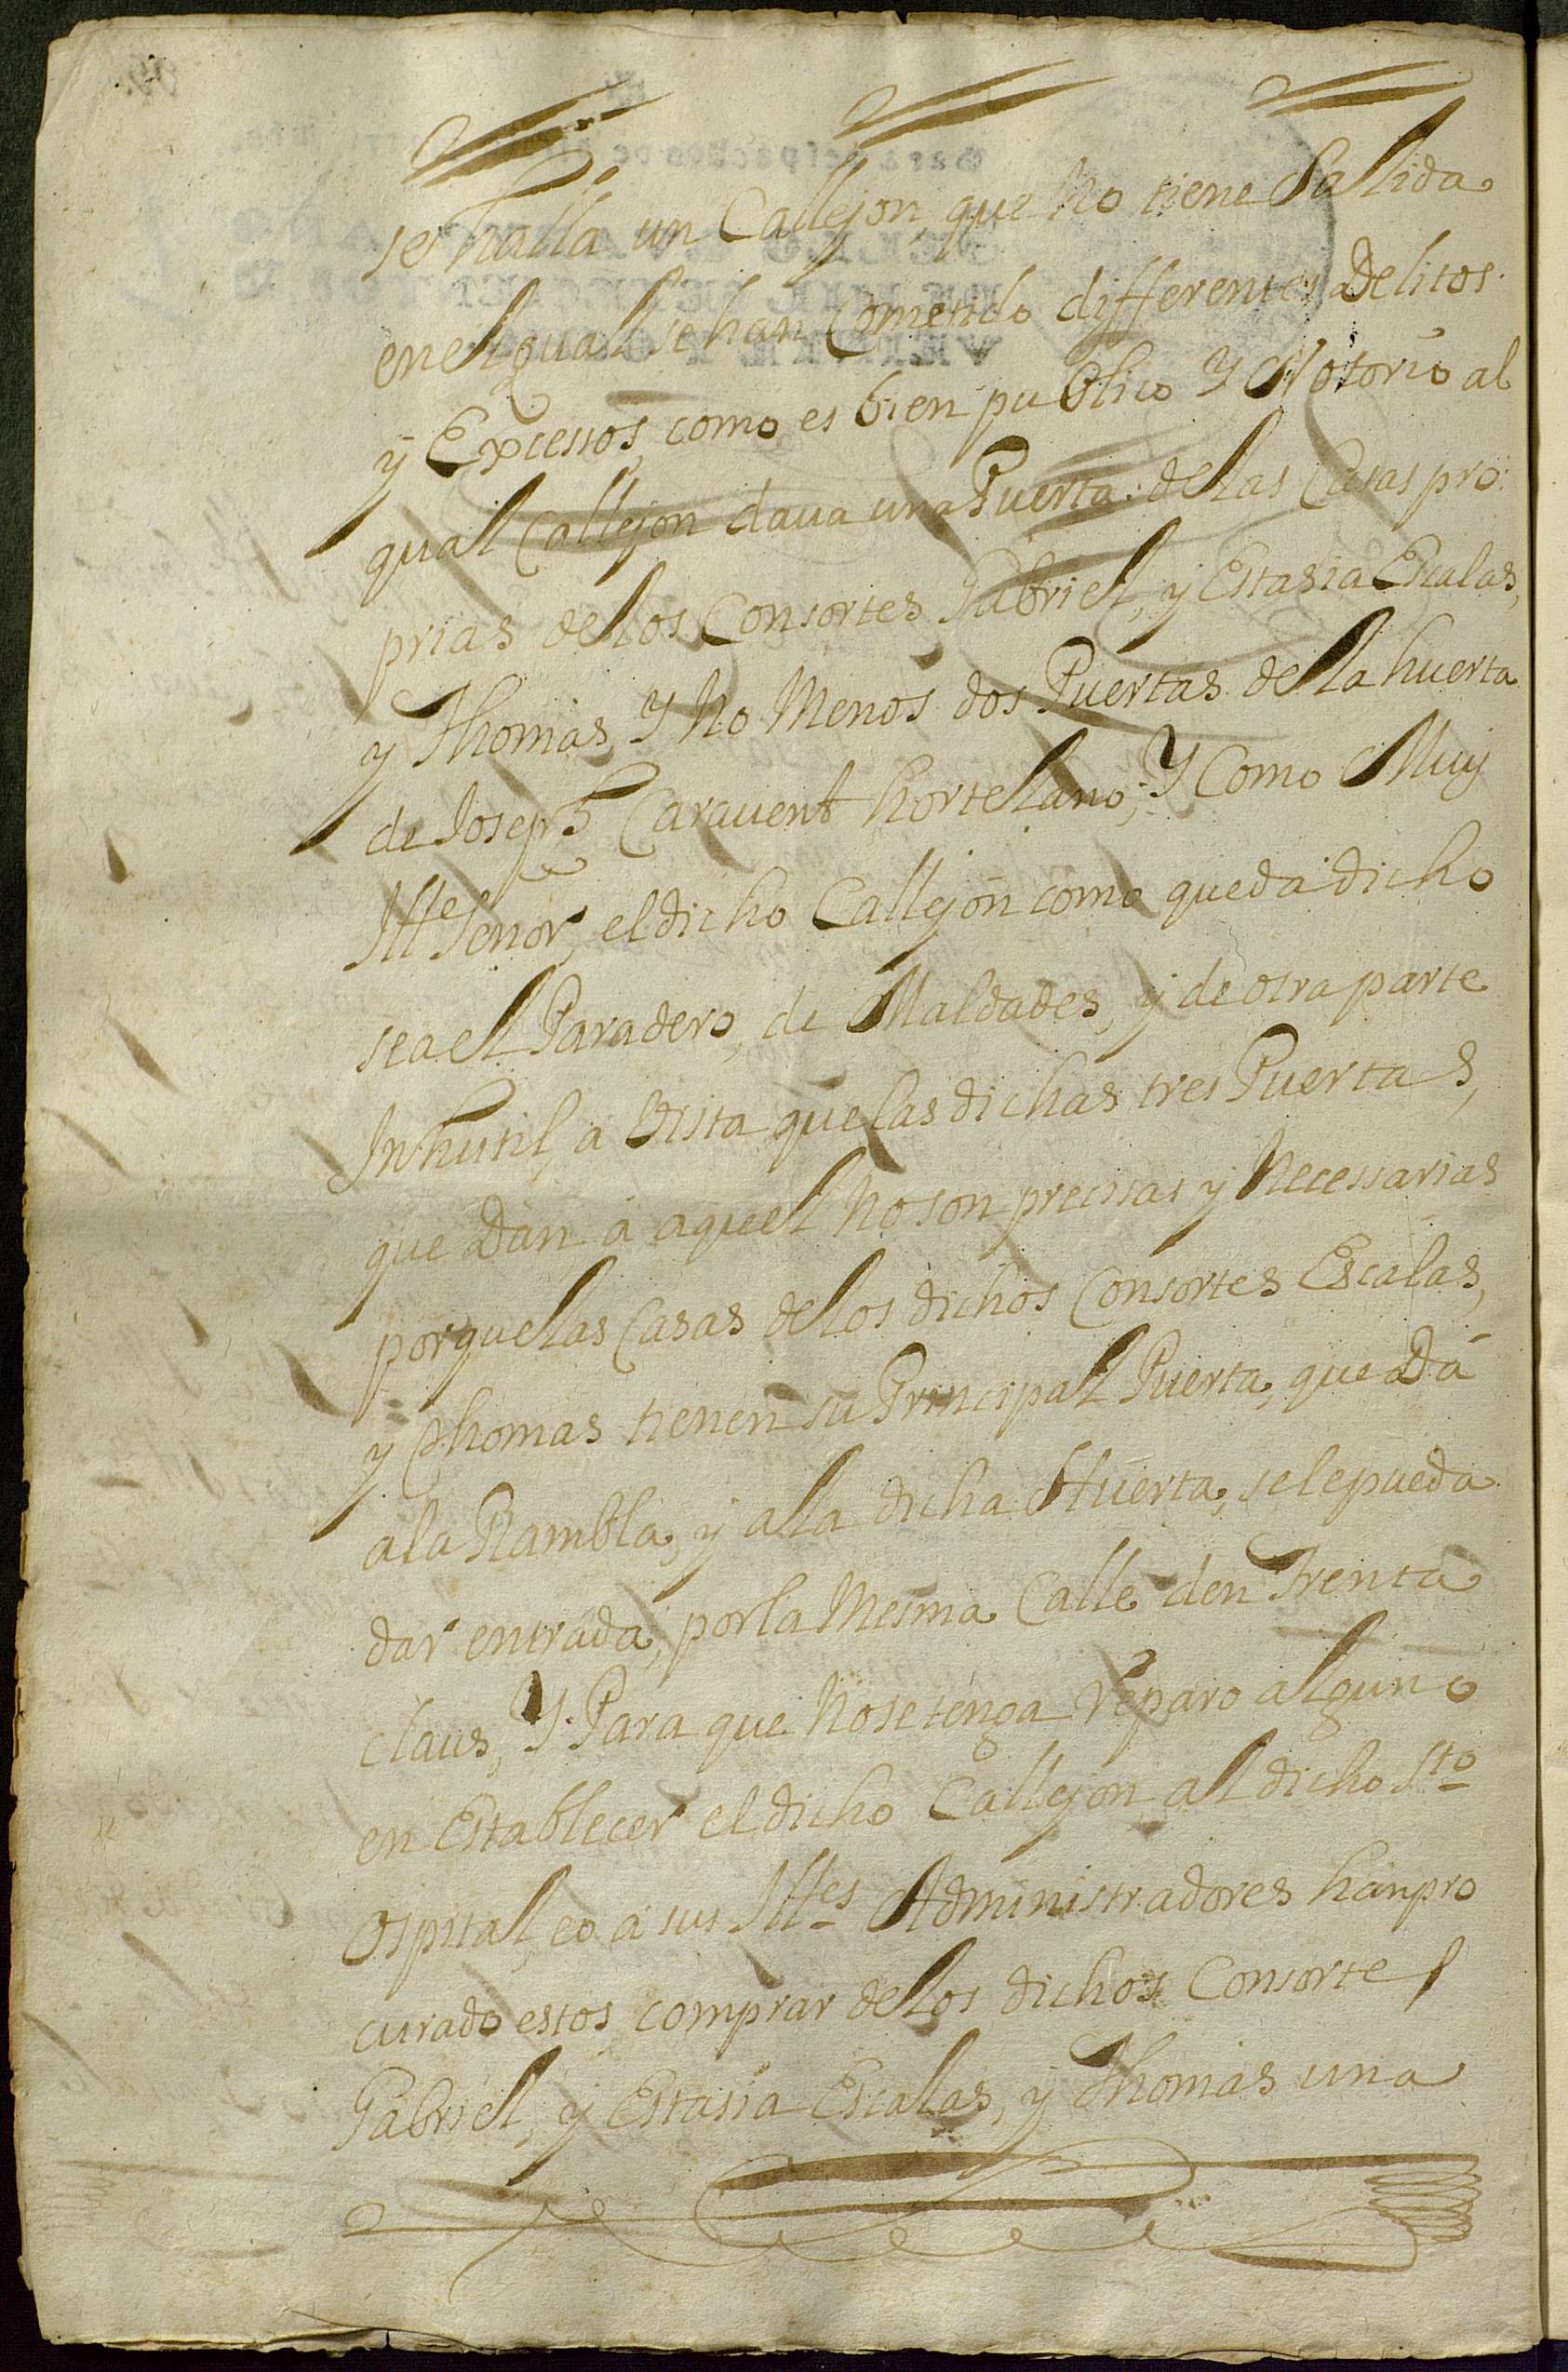 se halla un Callejon, que no tiene Sallida
en el qual se han Cometido differentes Delitos
y Excessos, como es bien publico Y Notorio al
qual Callejon daua una Puerta de las Casas pro
prias de los Consortes Gabriel, y Estasia Escalas,
y Thomas, Y no Menos dos Puertas de la huerta
de Joseph Carauent hortelano; Y Como Muy
Ille Señor, el dicho Callejon como queda dicho
sea el Paradero, de Maldades, y de otra parte
Inhutil, a Vista que las dichas tres Puertas,
que Dan â aquel no son precisas y Necessarias
porque las Casas de los dichos Consortes Escalas,
y Thomas tienen su Principal Puerta, que Dá
a la Rambla, y a la dicha Huerta, se le pueda
dar entrada, por la Mesma Calle den Trenta
claus, Y Para que no se tenga reparo alguno
en Establecer el dicho Callejon al dicho Sto
Ospital, eo â sus Illes Administradores han pro
curado estos comprar de los dichos Consortes
Gabriel, y Estasia Escalas, y Thomas una